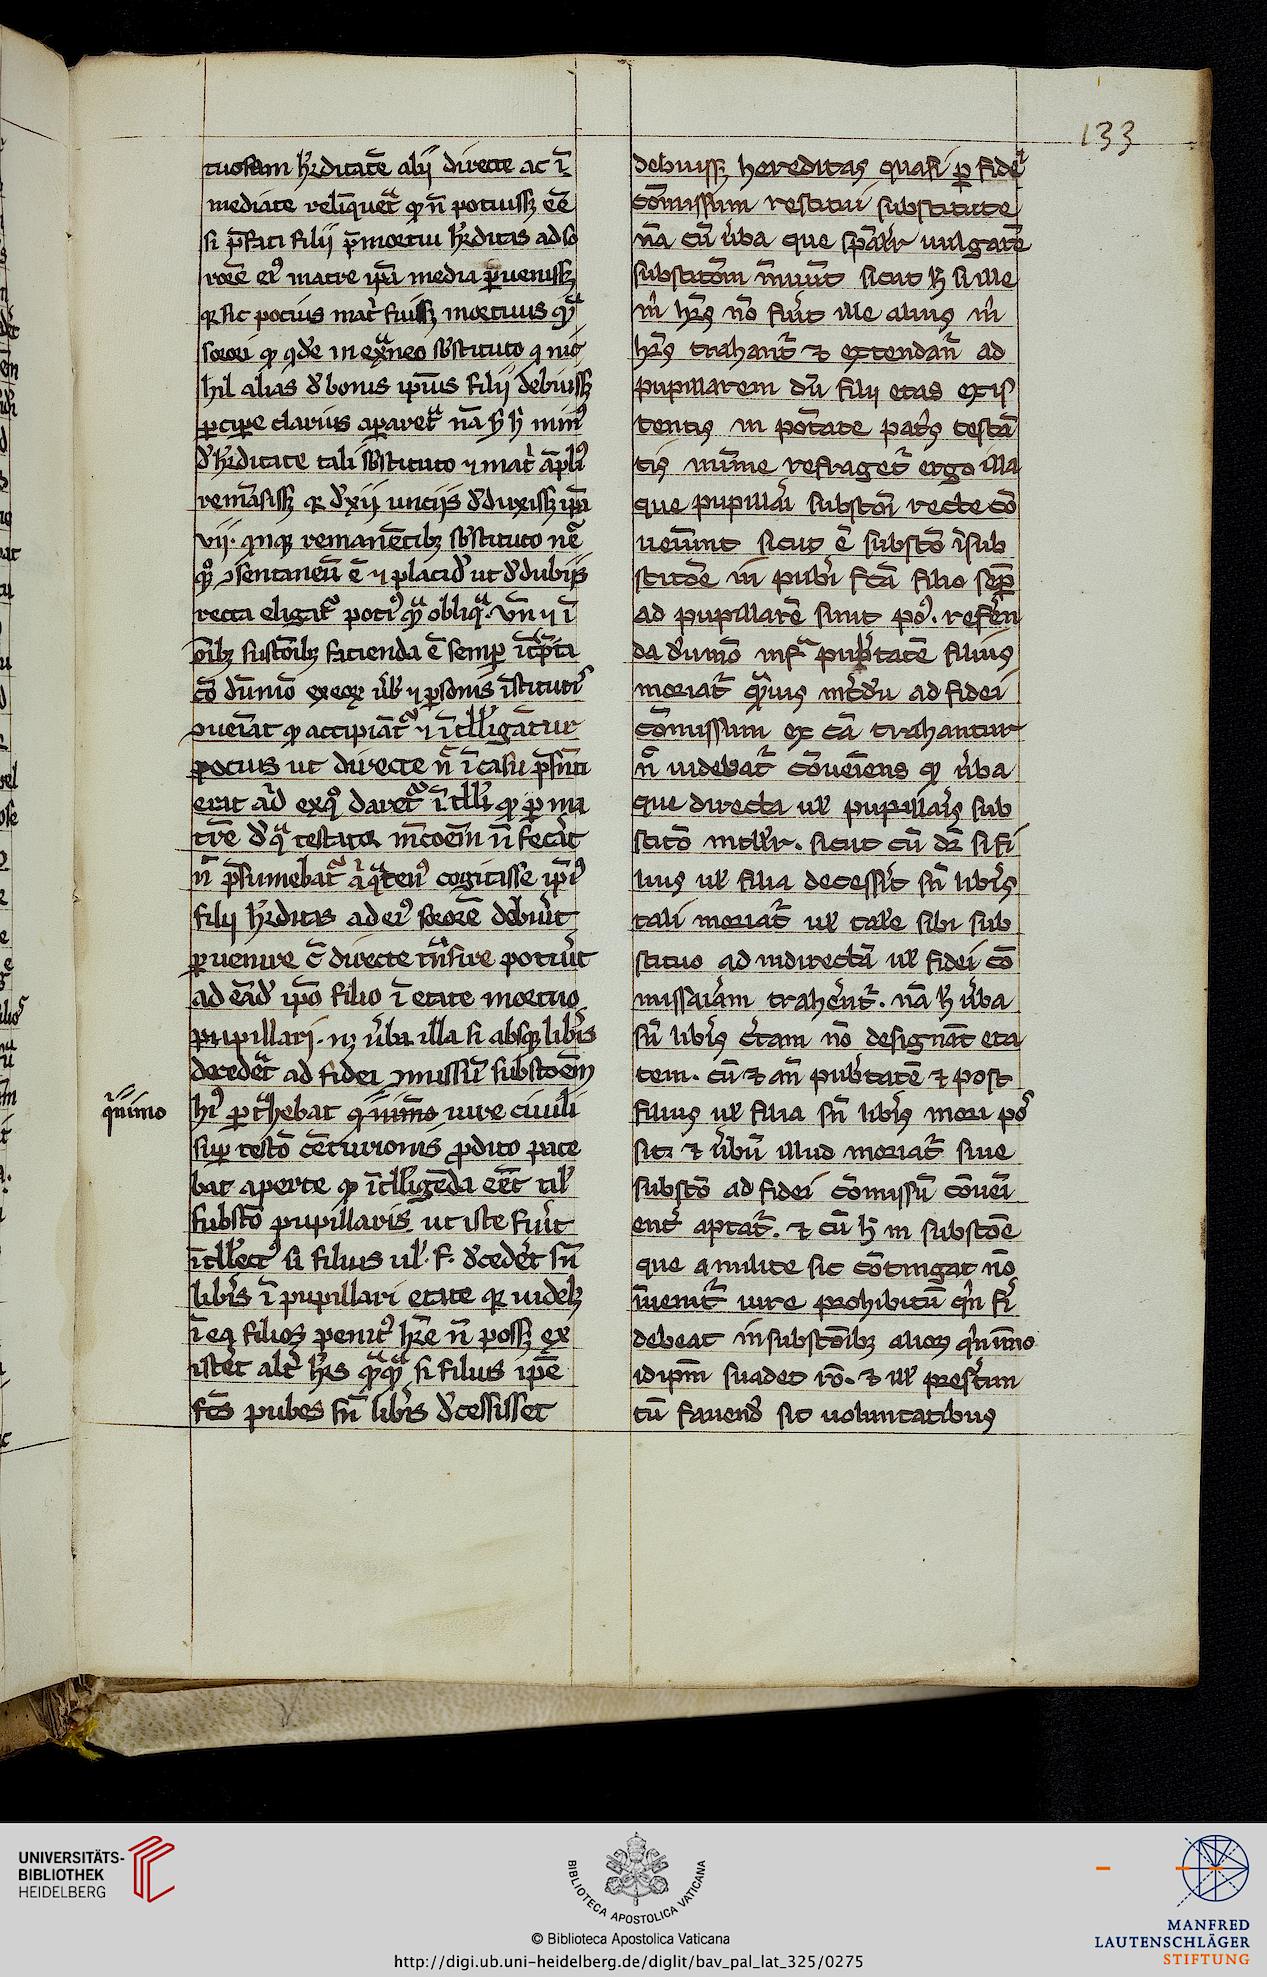 133
tuosam h'editatē alij directe ac ī
mediate reliquet̄ qd n̄ potuissꝫ eē
si p̄fati filij p̄mortui h'editas ad so
rorē eiꝰ matre ip̄a media ꝑuenissꝫ
qr sic potius mat̄ fuissꝫ mortuus
sorori qd qde in ext̄neo sbstituto q nic
hil alias d' bonis ipīus filij debuissꝫ
ꝑciꝑe clarius aꝑaret̄ nā
d' h'editate tali sbstituto ⁊ mat̄ āpliꝰ
remāsissꝫ qr d' xij uncijs d'duxissꝫ ip̄a
vij. qnqꝫ remanētibꝫ sb'stituto
ꝯsentaneū ē ⁊ placid' ut d' dubijs
recta eligat̄ potiꝰ obliq. vn̄ ⁊ ī
oībꝫ sustōibꝫ facienda ē semꝑ
ꝯueīāt qd accipiāt̄ ⁊ ītll'igātur
pocius ut directe n̄ ī casu p̄sn̄ti
erat daret̄ qd ꝑ ma
trē testator n̄ fec'it
n̄ p̄sumebat̄ cogitasse ip̄iꝰ
filij h'editas ad eiꝰ sororē debu'it
ꝑuenire directe tn̄sire potu'it
ad eād' ip̄o filio ī etate mortuo
pupillari. uꝫ u'ba illa si absqꝫ lib'is
decedet̄ ad fidei ꝯmissū substōēm
qn̄imo
hꝰ ꝑt̄hebat qn̄imo iure ciuili
suꝑ testō cēturionis ꝓdito pate
bat aperte qd ītll'igēda eēt til'
substō pupillaris ut iste fu'it
ītll'ectꝰ si filius ul'. f. d'ced'et sn̄
lib'is ī pupillari etate qr uidelꝫ
ī ea filios penitꝰ h're n̄ possꝫ ex
istēt alt' h'es si filius ip̄e
fc̄s pubes sn̄ lib'is d'cessisset
debuissꝫ hereditas quasi ꝑ fidei
cōmissum restitui substitute
nā cū u'ba que vulgarē
substitōm sicut si ille
m' h'es nō fu'it ille alius m'
h'es trahant̄ ⁊ extendan̄ ad
pupillarem dū filij etas exis
tentis in potate pat's testā
tis minime refraget̄ ergo illa
que pupillari substōi recte cō
ueniunt sicut ē substō
stitōe in pub'i fctā filio semꝑ
ad pupillarē sint poꝰ. refen
da d'umō infra pub'tatē filius
moriat̄ ad fidei
cōmissum ex cā trahantur
n̄ uidebat̄ cōueiens qd u'ba
que directa ul' pupillais sub
stitō sicut cū dr̄ si fi
lius ul' filia decess'it sn̄ lib'is
tali moriat̄ ul' tale sibi sub
stituo ad indirectā ul' fidei cō
missaiam trah'ent̄. nā u'ba
sn̄ lib'is c'tam nō designāt eta
tem. cū ⁊ an̄ pub'tatē ⁊ post
filius ul' filia sn̄ lib'is mori pos
sit ⁊ u'bū illud moriat̄ siue
substō ad fidei cōmissū cōueī
ent' aptat̄. ⁊ cū in substōe
que a milite sic cōtingat nō
īuenit̄ iure prohibitū q'n fi'
debeat in substōibꝫ alioꝝ q'nimo
idip̄m suadet rō. ⁊ prestim
tū fauend' sit uoluntatibus
UNIVERSITÄTS-
BIBLIOTHEK
HEIDELBERG
BIBLIOTECA APOSTOLICA VATICANA
© Biblioteca Apostolica Vaticana
http://digi.ub.uni-heidelberg.de/diglit/bav_pal_lat_325/0275
MANFRED
LAUTENSCHLÄGER
STIFTUNG